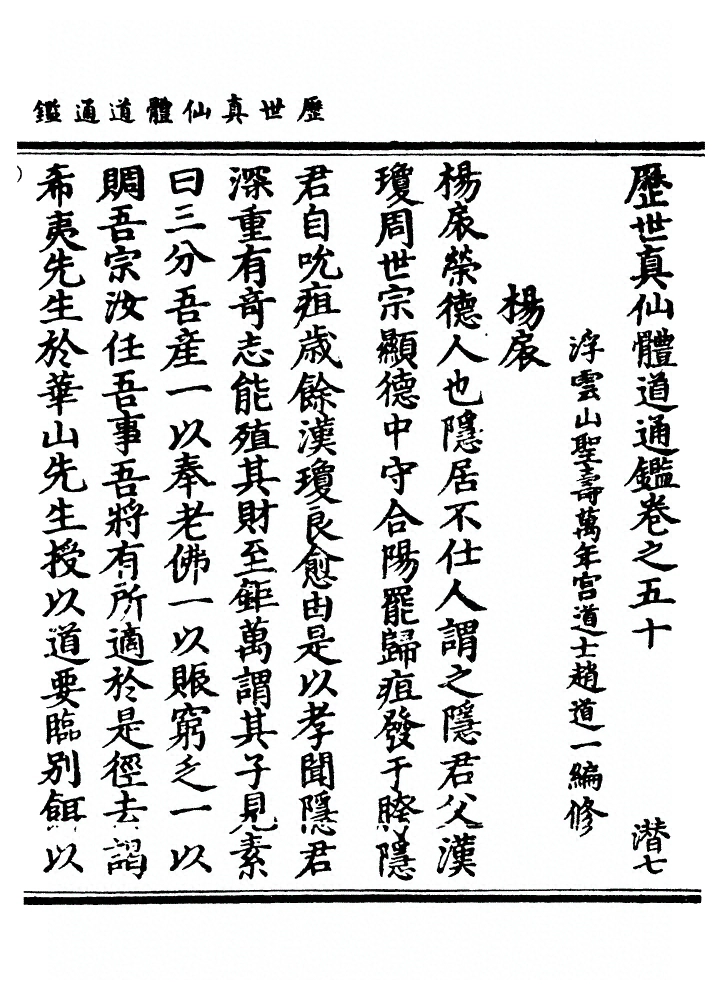 歷世真仙體道通鑑
歷世真仙體道通鑑卷之五十 潛七
浮雲山聖壽萬年宮道士趙道一編修
楊扆
楊扆榮德人也隱居不仕人謂之隱君父漢
瓊周世宗顯德中守合陽罷歸疽發于䐡隱
君自吮疽歲餘漢瓊良愈由是以孝聞隱君
深重有奇志能殖其財至鉅萬謂其子見素
曰三分吾產一以奉老佛一以賑窮乏一以
賙吾宗汝任吾事吾將有所適於是徑去謁
希夷先生於華山先生授以道要臨別餌以